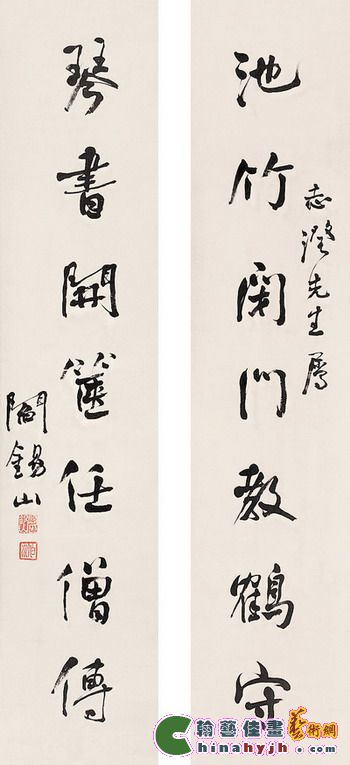 志澄先生屬
池竹閉門教鶴守
琴書開篋任僧傳
閻錫山
翰藝佳畫藝術網
Chinahyjh.com